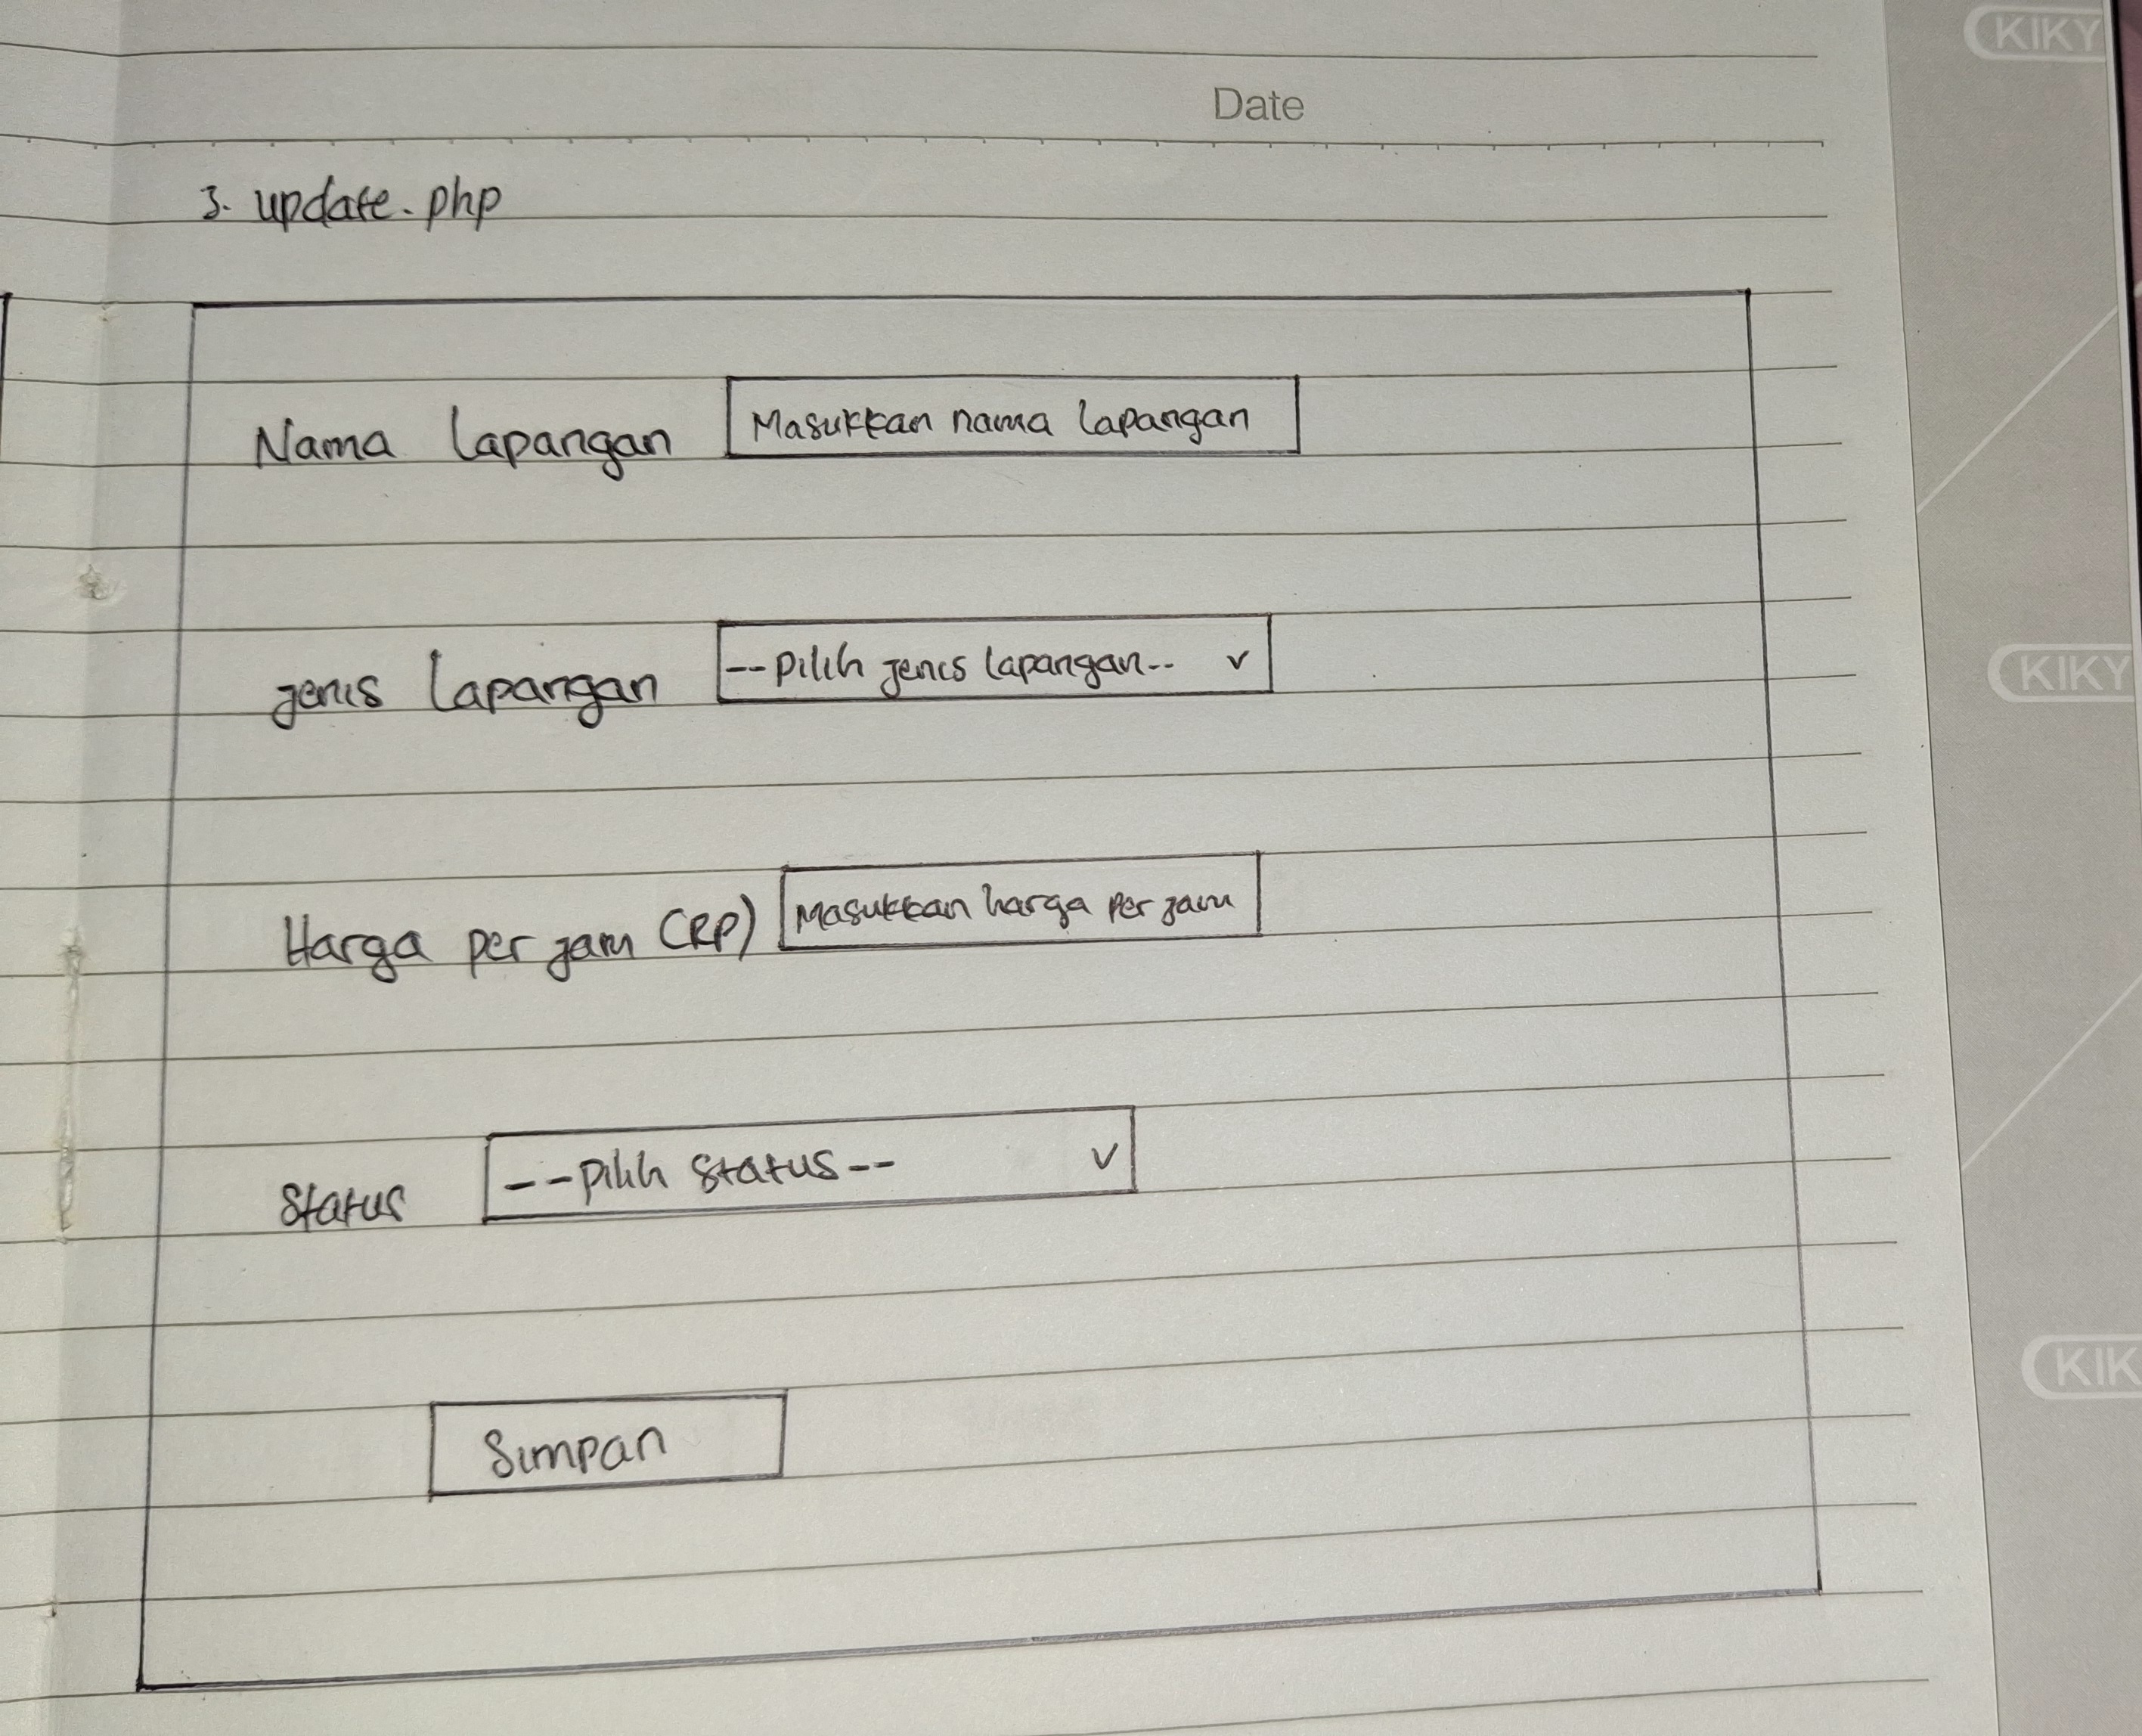 KIKY
Date
3. update.php
Nama lapangan Masukkan nama lapangan
jenis lapangan --Pilih jenis lapangan-- v
KIKY
Harga per jam (RP) Masukkan harga per jam
Status --Pilih status-- v
KIK
Simpan